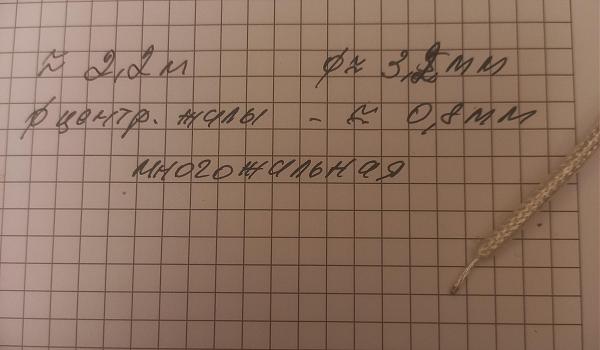 ≈ 2,2м ϕ≈ 3,2мм
ϕ центр. жалы - ≈ 0,8мм
многожальная